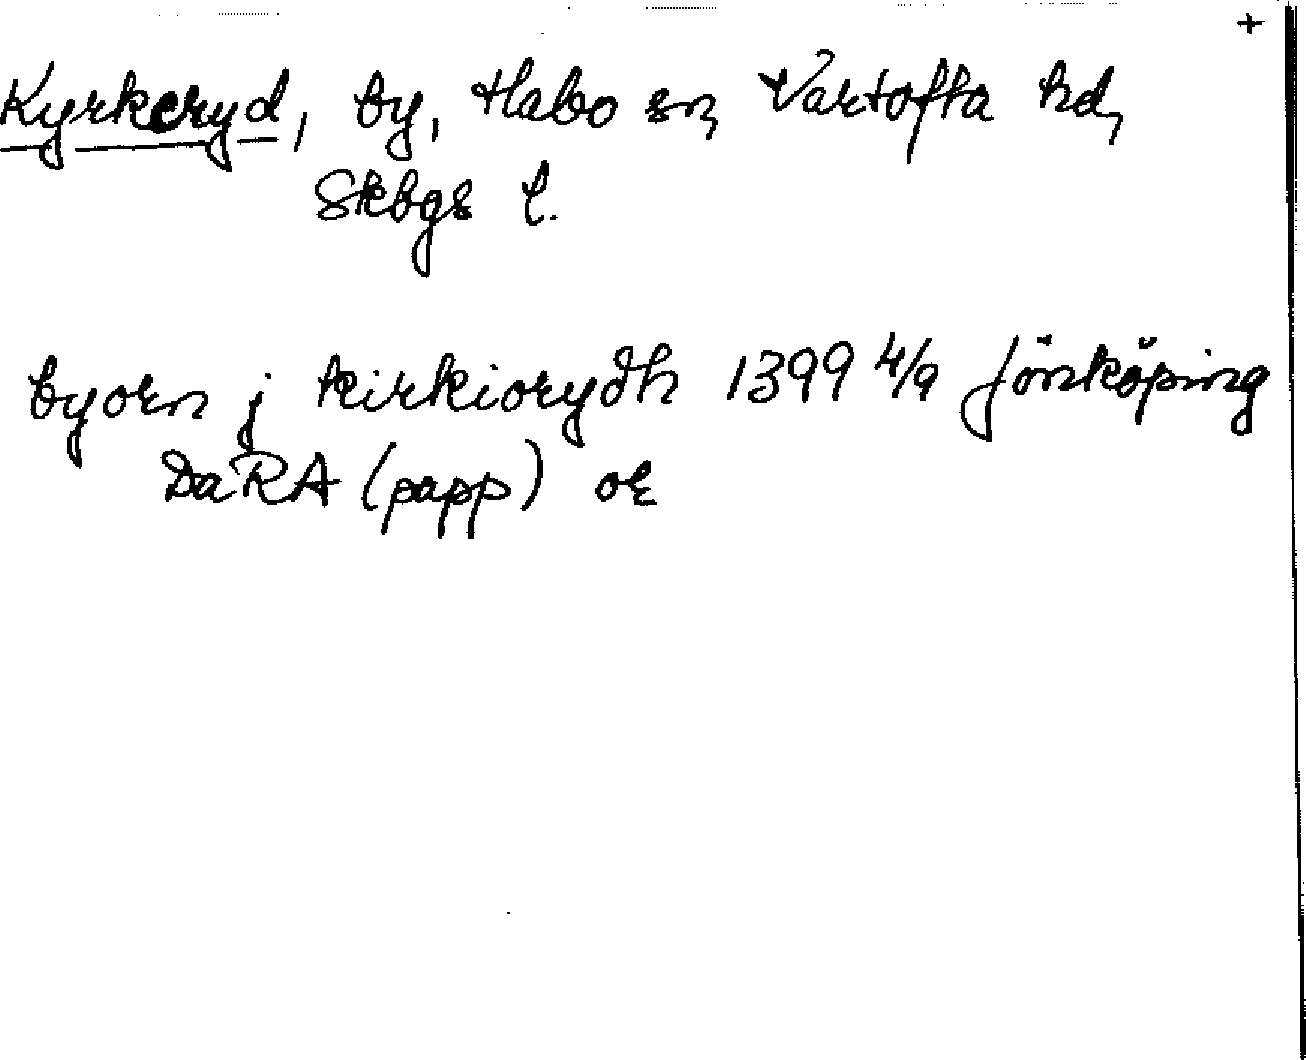 +
Kyrkeryd, by, Habo sn, Vartofta hd,
Skbgs l.
byorn j kirkiorydh 1399 4/9 Jönköping
DaRA (papp) or